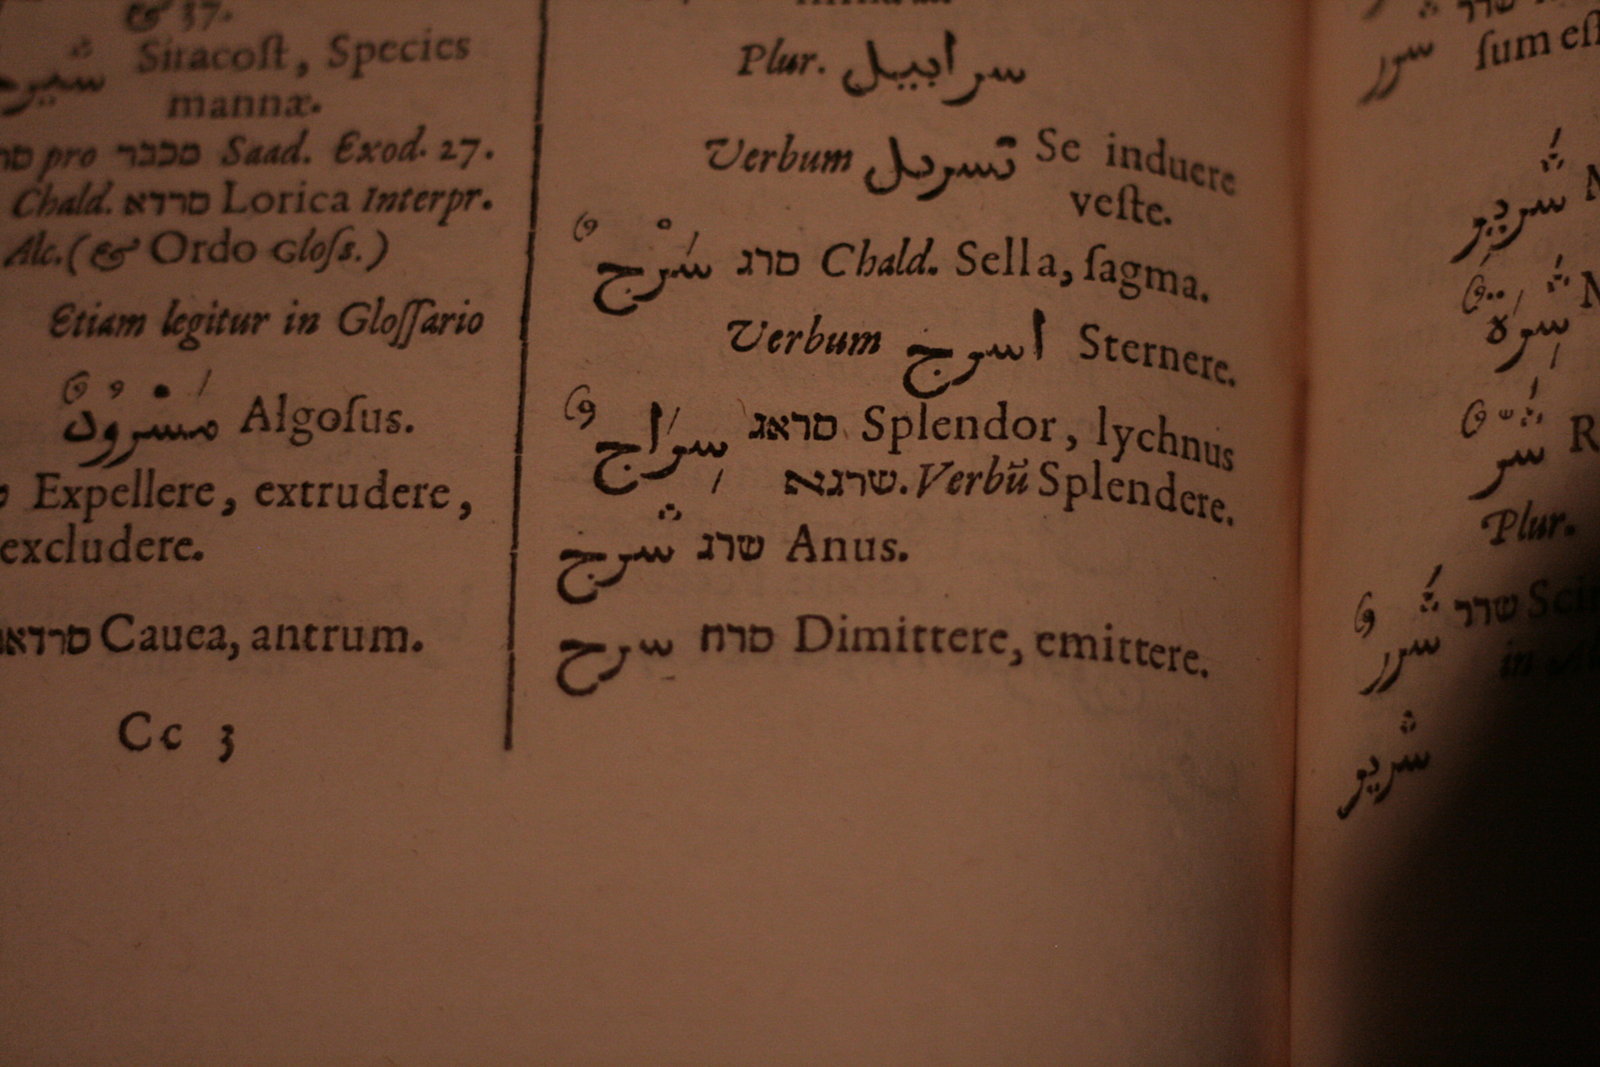 & 37.
Siracoſt, Species
mannæ.
pro מכבר Saad. Exod. 27.
Chald. סרדא Lorica Interpr.
Alc. (& Ordo Gloſſ.)
Etiam legitur in Gloſſario
Algoſus.
Expellere, extrudere,
excludere.
Cauea, antrum.
Cc 3
Plur. سرابيل
Verbum تسربل Se induere
veſte.
سَرْجٌ סרג Chald. Sella, ſagma.
Verbum اسرج Sternere.
سِرَاجٌ סראג Splendor, lychnus
שרגא. Verbũ Splendere.
شرج שרג Anus.
سرح סרח Dimittere, emittere.
ſum eſt
Plur.
שרר